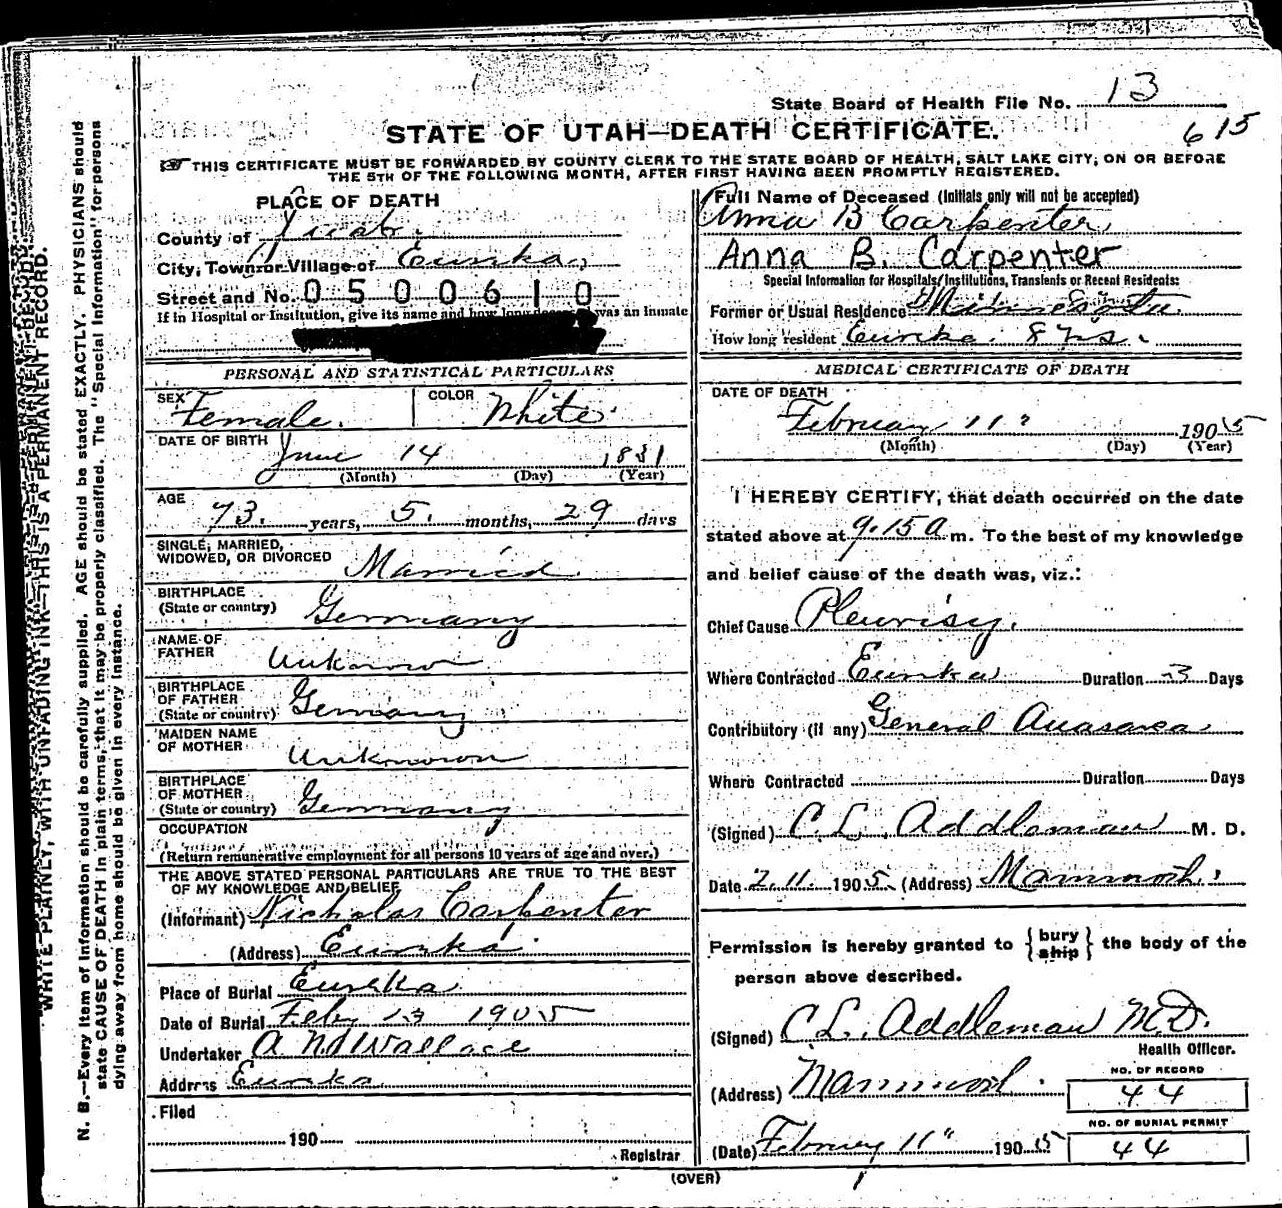 State Board of Health File No. 13
615
STATE OF UTAH—DEATH CERTIFICATE.
THIS CERTIFICATE MUST BE FORWARDED BY COUNTY CLERK TO THE STATE BOARD OF HEALTH, SALT LAKE CITY, ON OR BEFORE
THE 5TH OF THE FOLLOWING MONTH, AFTER FIRST HAVING BEEN PROMPTLY REGISTERED.
PLACE OF DEATH
County of Juab.
City, Town or Village of Eureka,
Street and No. 0500610
If in Hospital or Institution, give its name and how long was an inmate
PERSONAL AND STATISTICAL PARTICULARS
SEX Female. COLOR White.
DATE OF BIRTH June 14 1831
(Month) (Day) (Year)
AGE 73. years, 5. months, 29 days
SINGLE, MARRIED,
WIDOWED, OR DIVORCED Married
BIRTHPLACE
(State or country) Germany
NAME OF
FATHER Unknown
BIRTHPLACE
OF FATHER
(State or country) Germany
MAIDEN NAME
OF MOTHER Unknown
BIRTHPLACE
OF MOTHER
(State or country) Germany
OCCUPATION
(Return remunerative employment for all persons 10 years of age and over.)
THE ABOVE STATED PERSONAL PARTICULARS ARE TRUE TO THE BEST
OF MY KNOWLEDGE AND BELIEF
(Informant) Nicholas Carpenter
(Address) Eureka.
Place of Burial Eureka
Date of Burial Feby 13 1905
Undertaker Wallace
Address Eureka
Filed
190
Registrar
Full Name of Deceased (Initials only will not be accepted)
Anna B Carpenter
Anna B. Carpenter
Special Information for Hospitals, Institutions, Transients or Recent Residents:
Former or Usual Residence Minnesota
How long resident Eureka. 8 yrs.
MEDICAL CERTIFICATE OF DEATH
DATE OF DEATH
February 11" 1905
(Month) (Day) (Year)
I HEREBY CERTIFY, that death occurred on the date
stated above at 9.15 a m. To the best of my knowledge
and belief cause of the death was, viz.:
Chief Cause Pleurisy.
Where Contracted Eureka Duration 3 Days
Contributory (if any) General Anasarca
Where Contracted Duration Days
(Signed) C. L. Addleman M. D.
Date 2. 11. 1905. (Address) Mammoth.
Permission is hereby granted to {bury ship} the body of the
person above described.
(Signed) C L. Addleman M.D.
Health Officer.
(Address) Mammoth.
NO. OF RECORD
44
NO. OF BURIAL PERMIT
44
(Date) February 11" 1905
(OVER)
WRITE PLAINLY, WITH UNFADING INK—THIS IS A PERMANENT RECORD.
N. B.—Every item of information should be carefully supplied. AGE should be stated EXACTLY. PHYSICIANS should
state CAUSE OF DEATH in plain terms, that it may be properly classified. The "Special Information" for persons
dying away from home should be given in every instance.